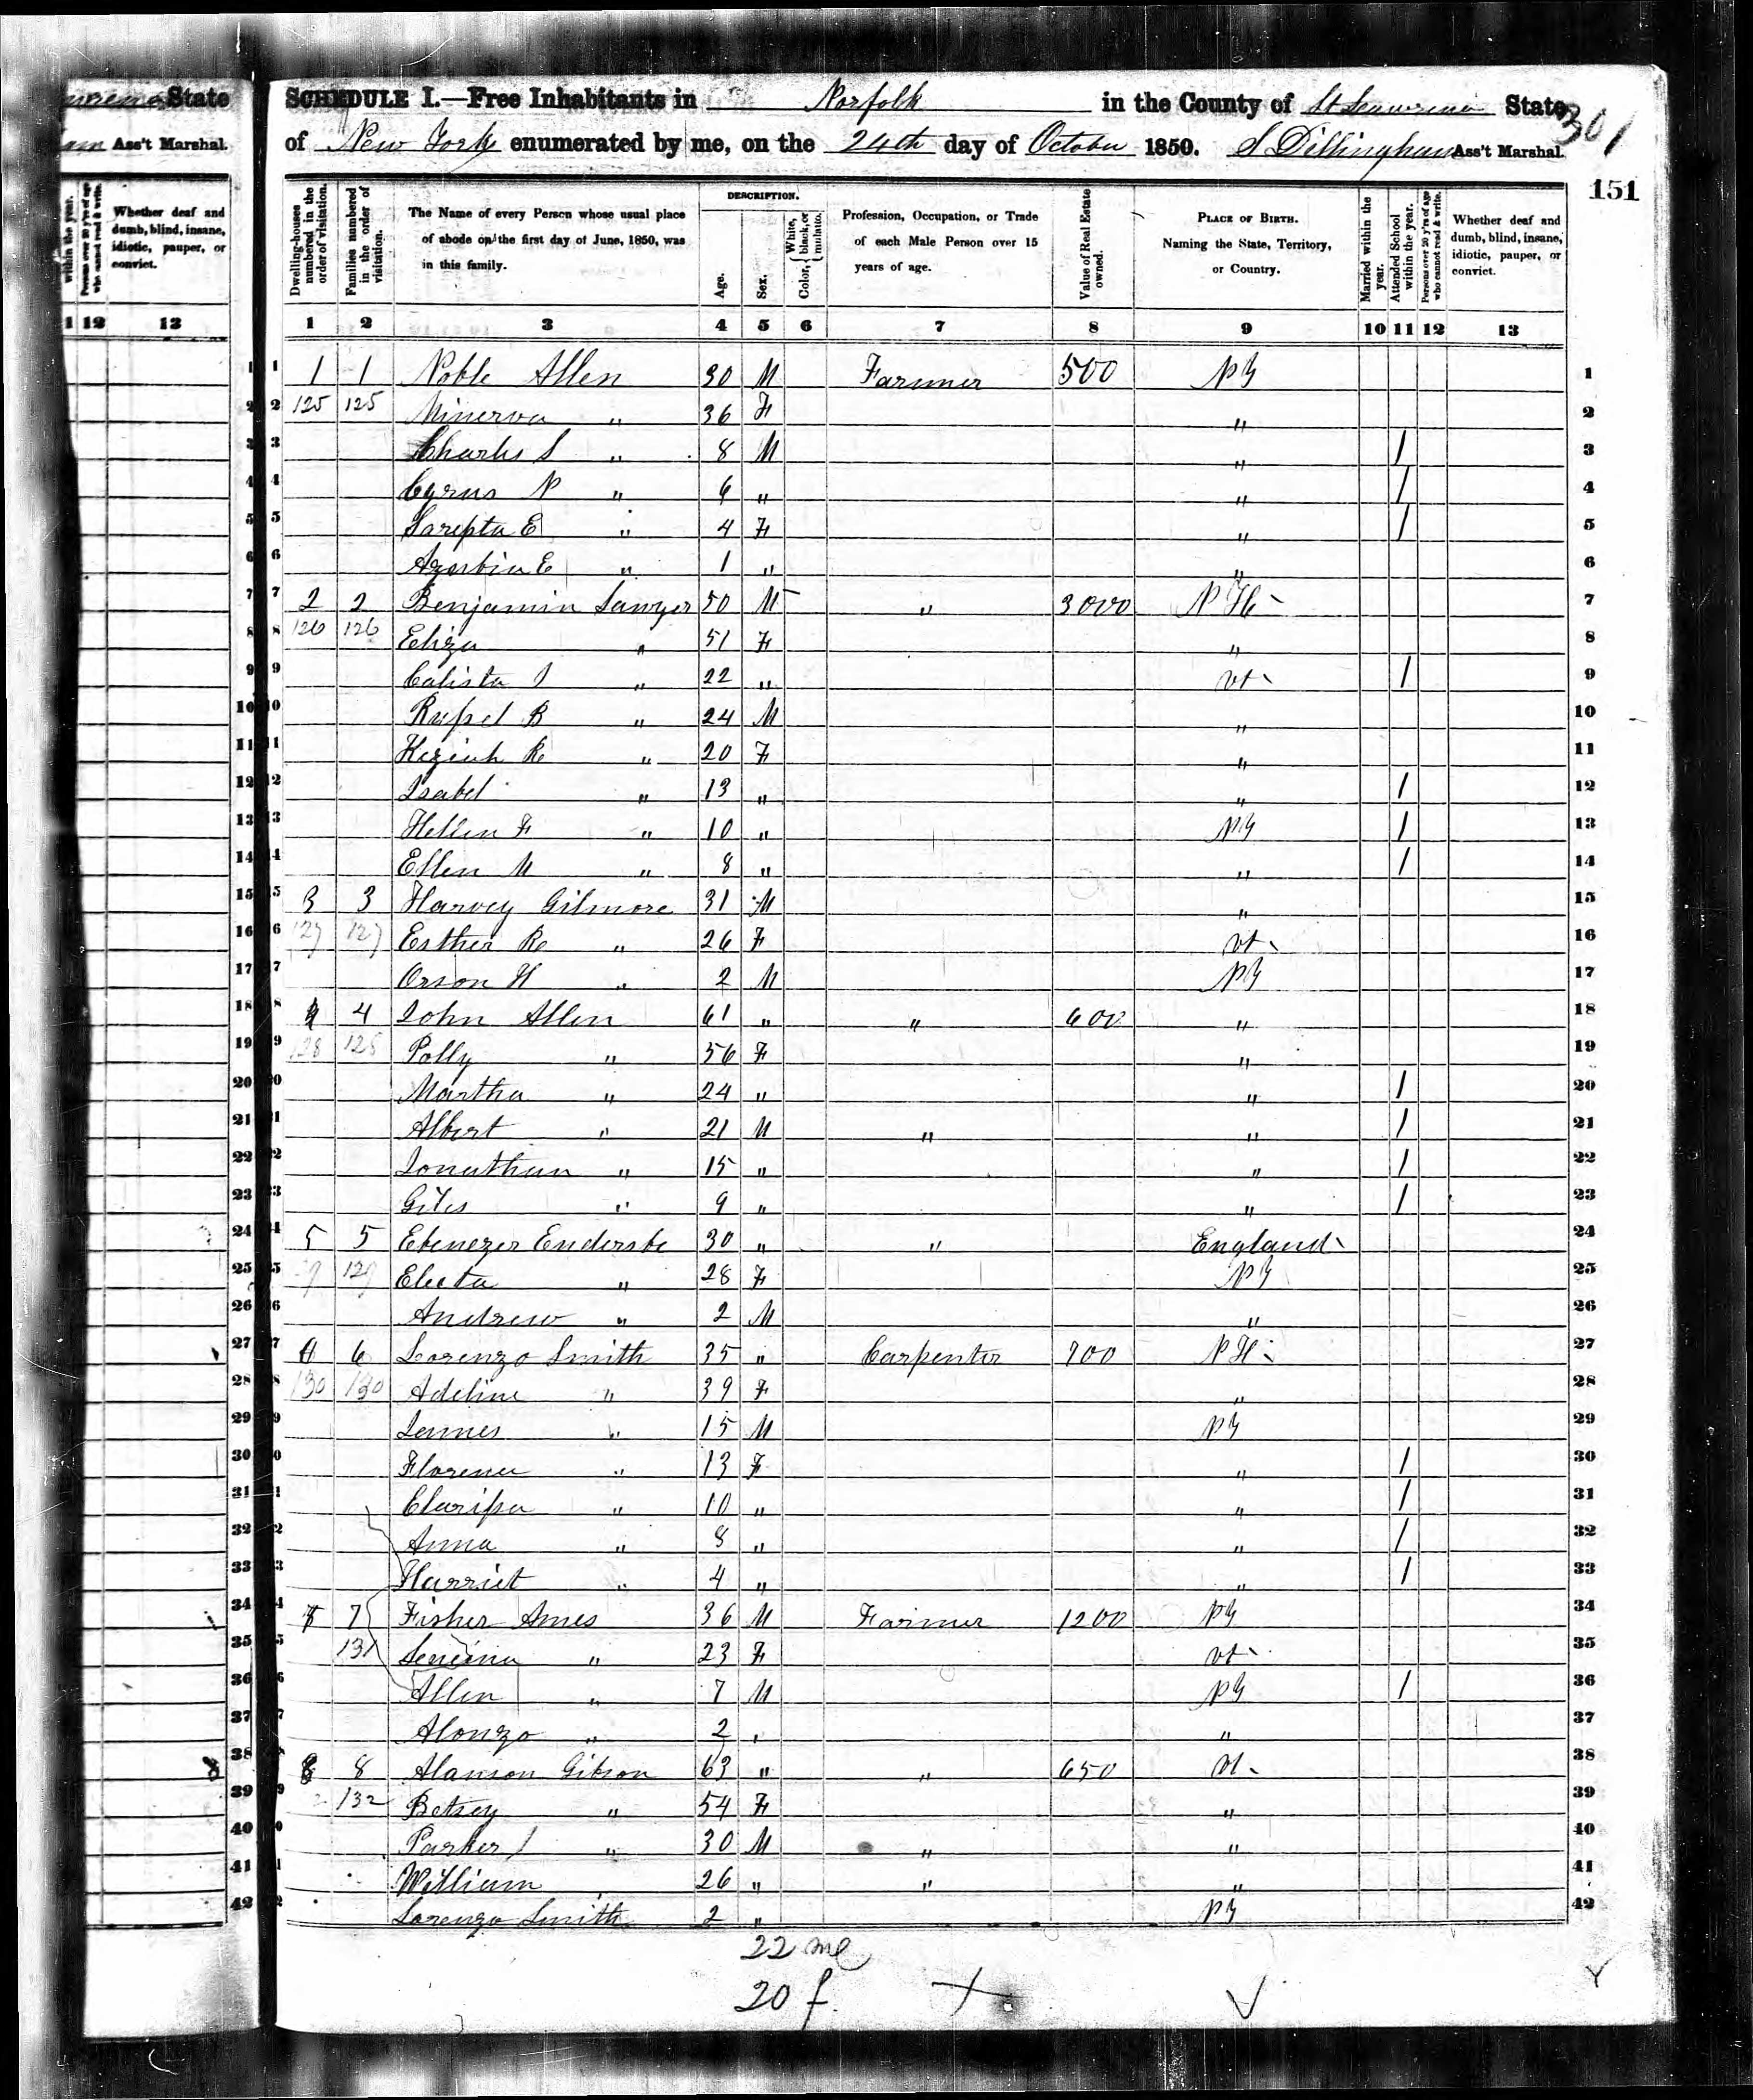 State
Ass't Marshal.
within the year.
Persons over 20 y'rs of age who cannot read & write.
Whether deaf and dumb, blind, insane, idiotic, pauper, or convict.
1 12 13
SCHEDULE I.—Free Inhabitants in Norfolk in the County of St Lawrence State
301
of New York enumerated by me, on the 24th day of October 1850. S Dillingham Ass't Marshal.
151
Dwelling-houses numbered in the order of visitation.
Families numbered in the order of visitation.
The Name of every Person whose usual place of abode on the first day of June, 1850, was in this family.
DESCRIPTION.
Age.
Sex.
Color, { White, black, or mulatto.
Profession, Occupation, or Trade of each Male Person over 15 years of age.
Value of Real Estate owned.
PLACE OF BIRTH. Naming the State, Territory, or Country.
Married within the year.
Attended School within the year.
Persons over 20 y'rs of age who cannot read & write.
Whether deaf and dumb, blind, insane, idiotic, pauper, or convict.
1 2 3 4 5 6 7 8 9 10 11 12 13
1 1 1 Noble Allen 30 M Farmer 500 NY 1
2 125 125 Minerva " 36 F " 2
3 Charles S " 8 M " / 3
4 Cyrus N " 6 " " / 4
5 Sarepta E " 4 F " / 5
6 E " 1 " " 6
7 2 2 Benjamin Sawyer 50 M " 3000 N H 7
8 126 126 Eliza " 51 F " 8
9 Calista J " 22 " Vt / 9
10 Russel B " 24 M " 10
11 Keziah R " 20 F " 11
12 Isabel " 13 " " / 12
13 Hellen F " 10 " NY / 13
14 Ellen M " 8 " " / 14
15 3 3 Harvey Gilmore 31 M " 15
16 127 127 Esther R " 26 F Vt 16
17 Orson H " 2 M NY 17
18 4 4 John Allen 61 " " 600 " 18
19 128 128 Polly " 56 F " 19
20 Martha " 24 " " / 20
21 Albert " 21 M " " / 21
22 Jonathan " 15 " " / 22
23 Giles " 9 " " / 23
24 5 5 Ebenezer Endersbe 30 " " England 24
25 129 Electa " 28 F NY 25
26 Andrew " 2 M " 26
27 6 Lorenzo Smith 35 " Carpenter 700 N H 27
28 130 130 Adeline " 39 F " 28
29 James " 15 M NY 29
30 Florena " 13 F " / 30
31 Clarissa " 10 " " / 31
32 Anna " 8 " " / 32
33 Harriet " 4 " " / 33
34 7 7 Fisher Ames 36 M Farmer 1200 NY 34
35 131 " 23 F Vt 35
36 Allen " 7 M NY / 36
37 Alonzo " 2 " " 37
38 8 8 Alanson Gibson 63 " " 650 Vt 38
39 132 Betsey " 54 F " 39
40 Parker J " 30 M " " 40
41 William 26 " " " 41
42 Lorenzo Smith 2 " NY 42
22 me
20 f.